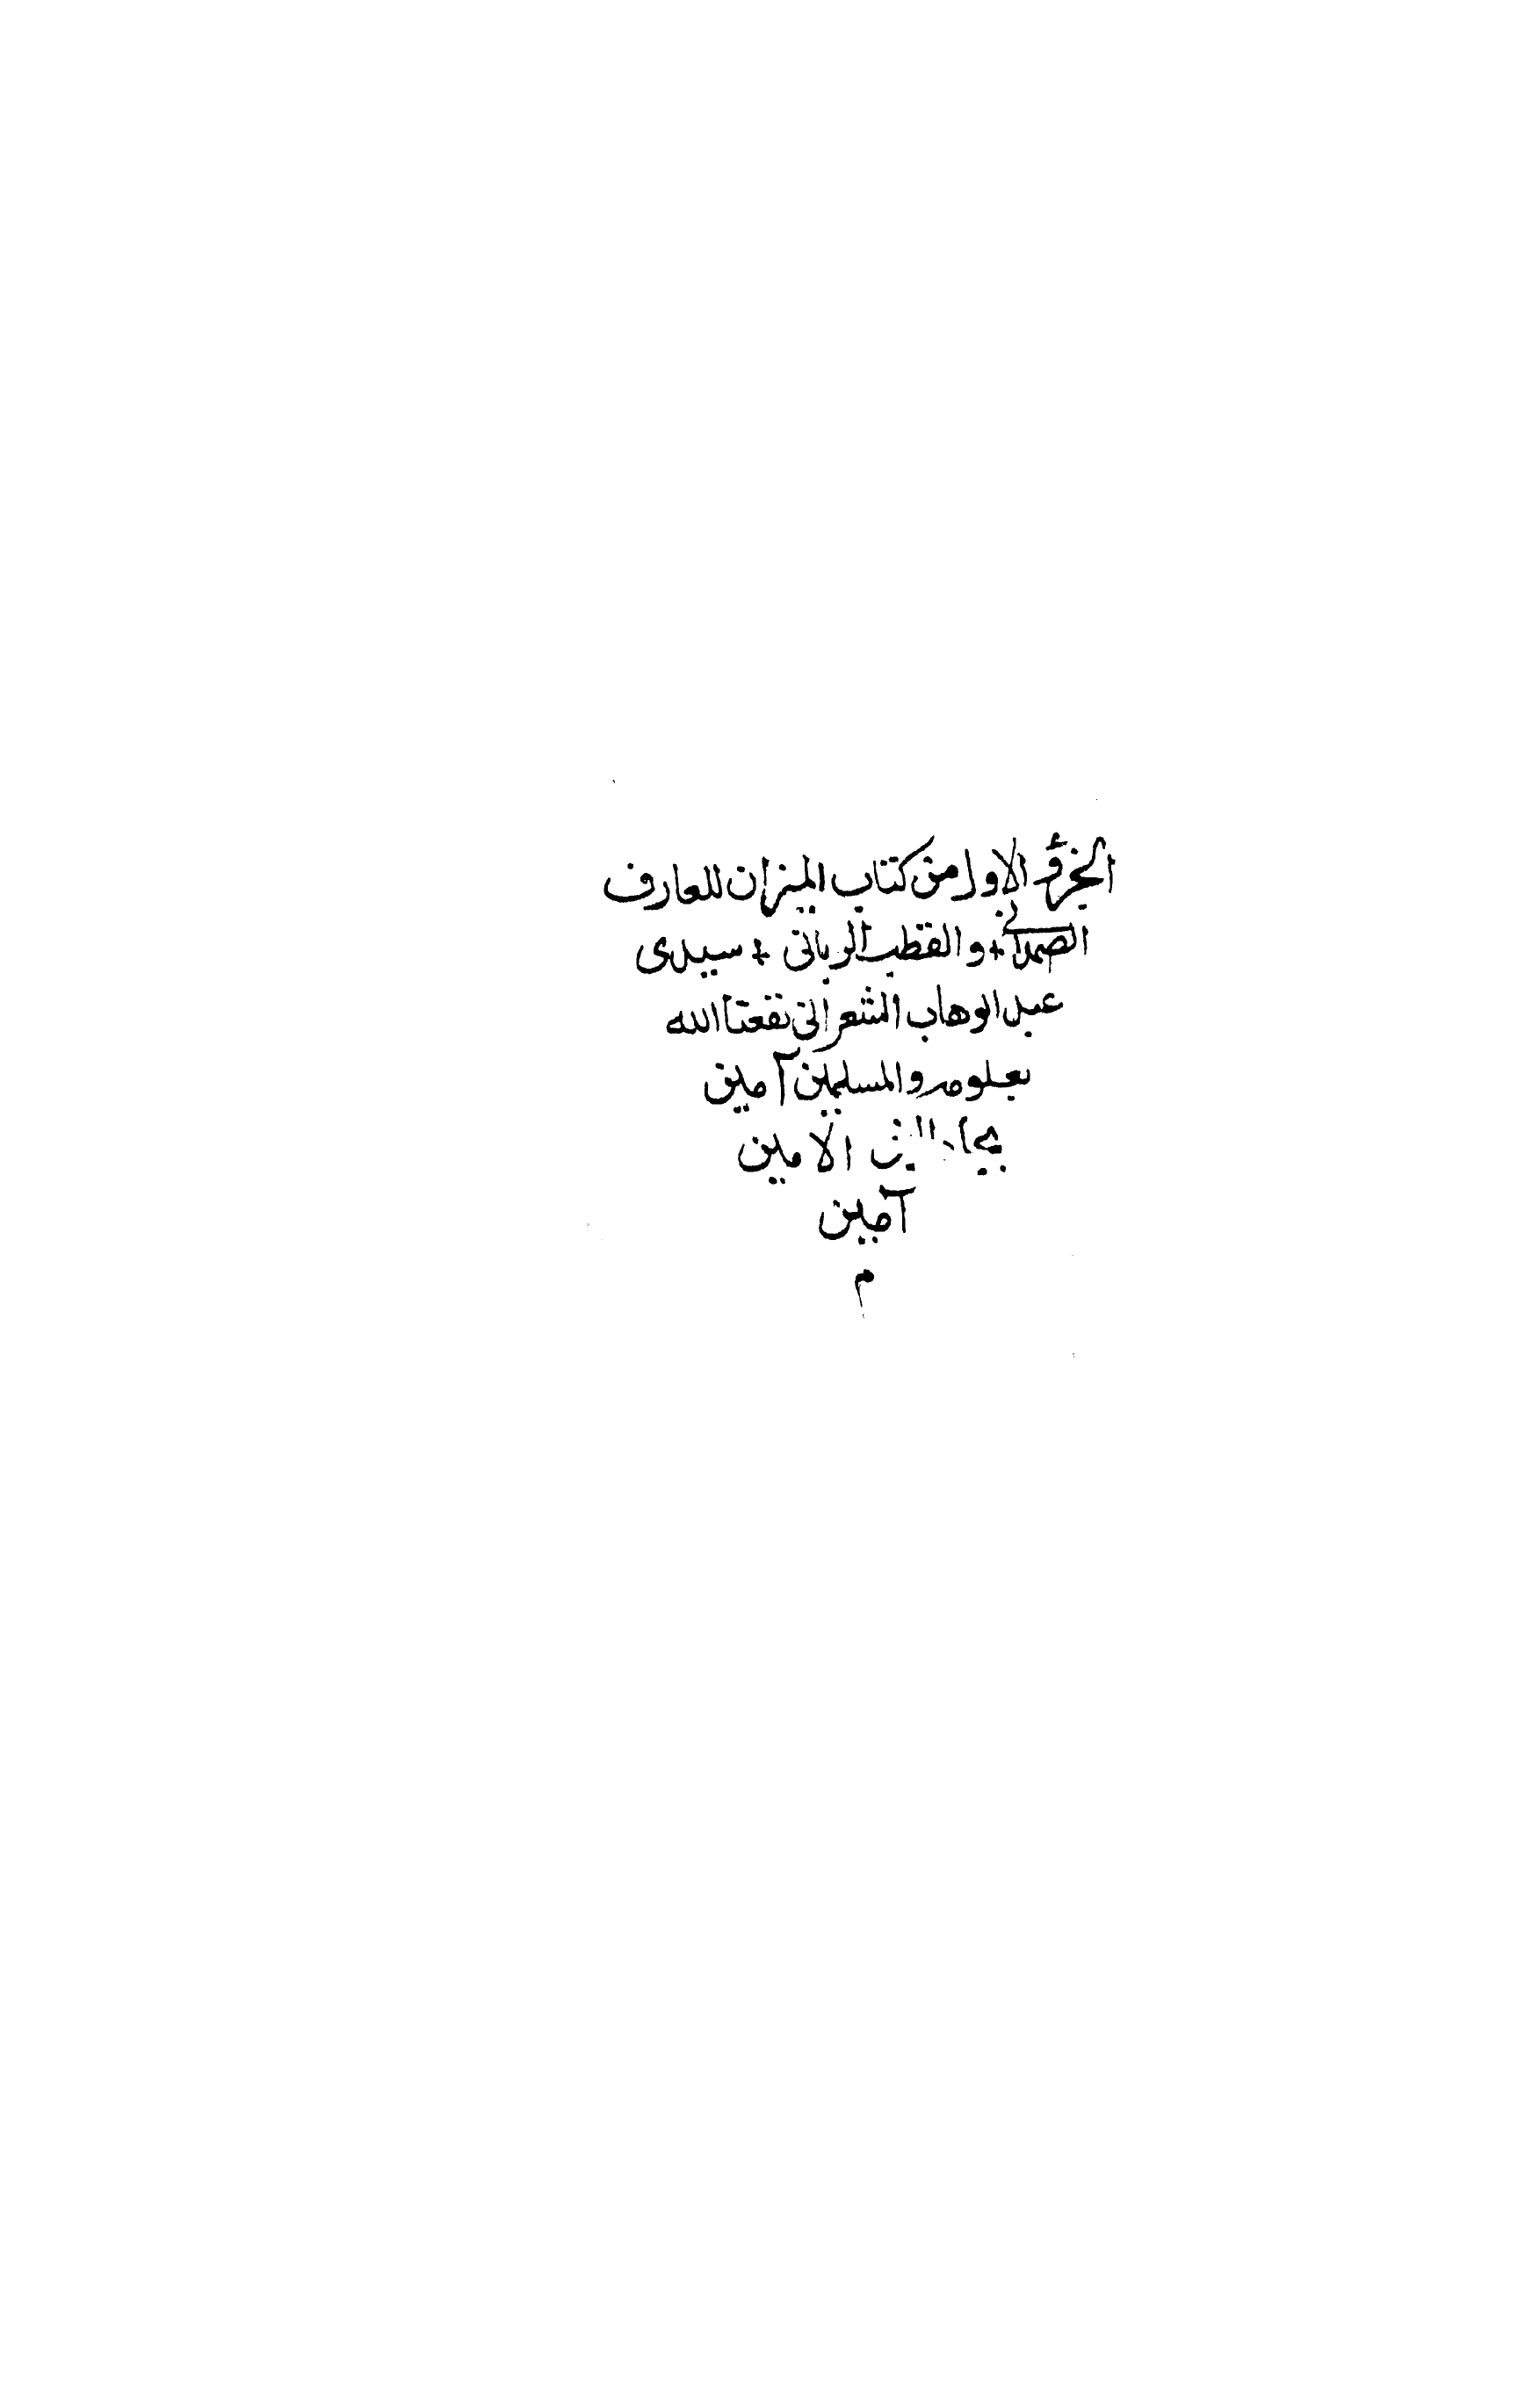 الجزء الاول من كتاب الميزان للعارف
الصمدانى + والقطب الربانى + سيدى
عبد الوهاب الشعرانى نفعنا الله
بعلومه والمسلمين آمين
بجاه الامين
آمين
م